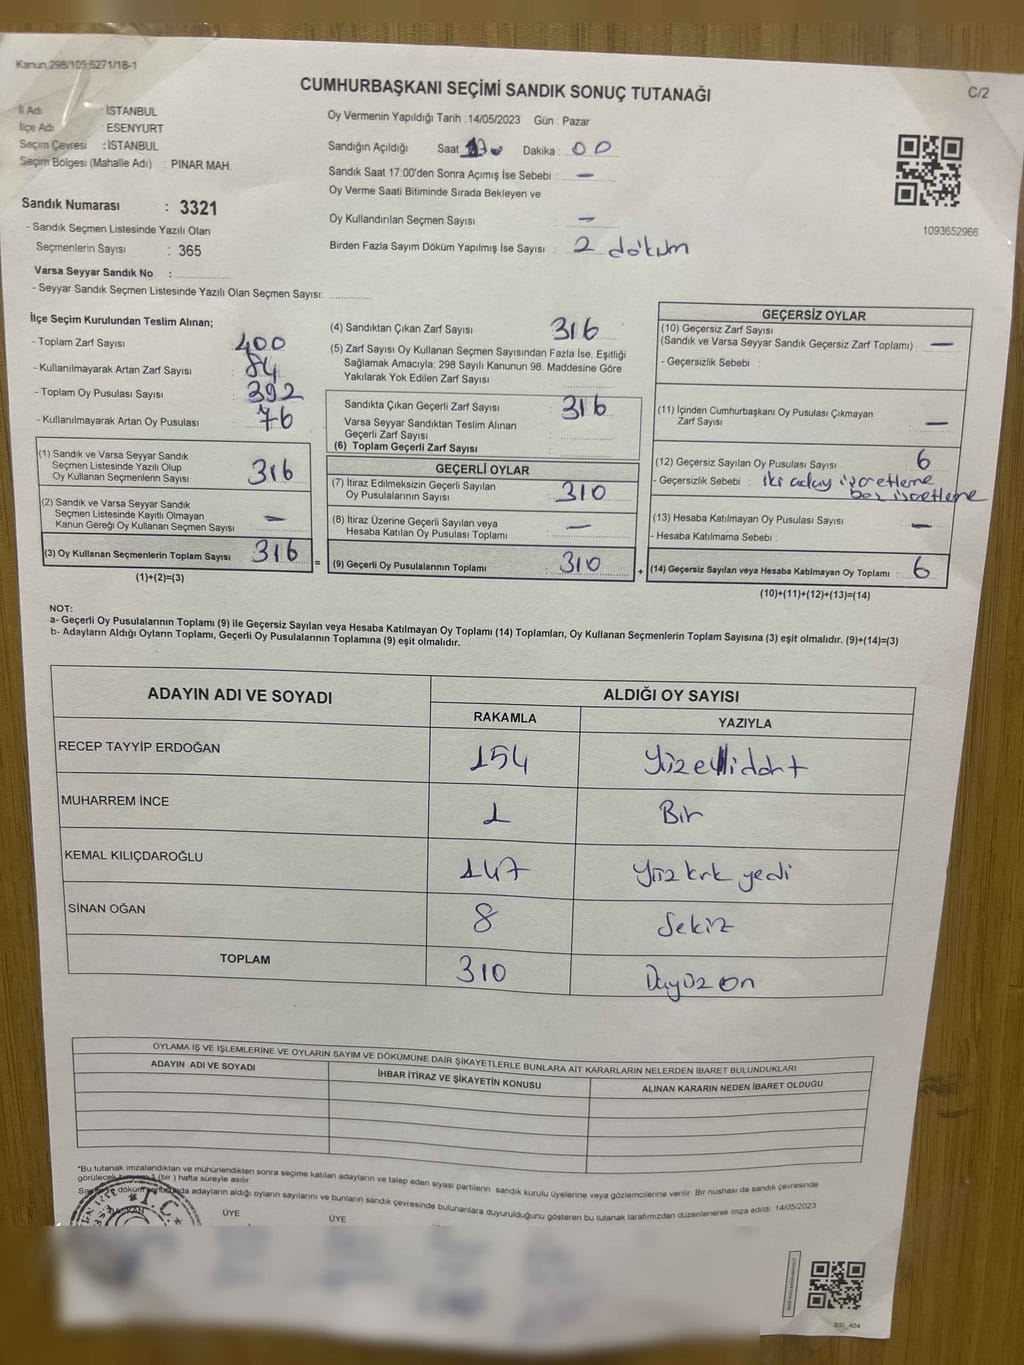 Kanun 298/105;5271/18-1
CUMHURBAŞKANI SEÇİMİ SANDIK SONUÇ TUTANAĞI
C/2
İl Adı : İSTANBUL
İlçe Adı : ESENYURT
Seçim Çevresi : İSTANBUL
Seçim Bölgesi (Mahalle Adı) : PINAR MAH.
Sandık Numarası : 3321
- Sandık Seçmen Listesinde Yazılı Olan
Seçmenlerin Sayısı : 365
Varsa Seyyar Sandık No :
- Seyyar Sandık Seçmen Listesinde Yazılı Olan Seçmen Sayısı:
Oy Vermenin Yapıldığı Tarih : 14/05/2023 Gün : Pazar
Sandığın Açıldığı Saat Dakika : 00
Sandık Saat 17:00'den Sonra Açımış İse Sebebi : —
Oy Verme Saati Bitiminde Sırada Bekleyen ve
Oy Kullandırılan Seçmen Sayısı : —
Birden Fazla Sayım Döküm Yapılmış İse Sayısı : 2 döküm
1093652966
İlçe Seçim Kurulundan Teslim Alınan;
- Toplam Zarf Sayısı : 400
- Kullanılmayarak Artan Zarf Sayısı : 84
- Toplam Oy Pusulası Sayısı : 392
- Kullanılmayarak Artan Oy Pusulası : 76
(1) Sandık ve Varsa Seyyar Sandık
Seçmen Listesinde Yazılı Olup
Oy Kullanan Seçmenlerin Sayısı : 316
(2) Sandık ve Varsa Seyyar Sandık
Seçmen Listesinde Kayıtlı Olmayan
Kanun Gereği Oy Kullanan Seçmen Sayısı : —
(3) Oy Kullanan Seçmenlerin Toplam Sayısı : 316
(1)+(2)=(3)
=
(4) Sandıktan Çıkan Zarf Sayısı : 316
(5) Zarf Sayısı Oy Kullanan Seçmen Sayısından Fazla İse, Eşitliği
Sağlamak Amacıyla; 298 Sayılı Kanunun 98. Maddesine Göre
Yakılarak Yok Edilen Zarf Sayısı :
Sandıkta Çıkan Geçerli Zarf Sayısı : 316
Varsa Seyyar Sandıktan Teslim Alınan
Geçerli Zarf Sayısı :
(6) Toplam Geçerli Zarf Sayısı :
GEÇERLİ OYLAR
(7) İtiraz Edilmeksizin Geçerli Sayılan
Oy Pusulalarının Sayısı : 310
(8) İtiraz Üzerine Geçerli Sayılan veya
Hesaba Katılan Oy Pusulası Toplamı : —
(9) Geçerli Oy Pusulalarının Toplamı : 310
+
GEÇERSİZ OYLAR
(10) Geçersiz Zarf Sayısı
(Sandık ve Varsa Seyyar Sandık Geçersiz Zarf Toplamı) : —
- Geçersizlik Sebebi :
(11) İçinden Cumhurbaşkanı Oy Pusulası Çıkmayan
Zarf Sayısı : —
(12) Geçersiz Sayılan Oy Pusulası Sayısı : 6
- Geçersizlik Sebebi : iki aday işaretleme
boş işaretleme
(13) Hesaba Katılmayan Oy Pusulası Sayısı : —
- Hesaba Katılmama Sebebi :
(14) Geçersiz Sayılan veya Hesaba Katılmayan Oy Toplamı : 6
(10)+(11)+(12)+(13)=(14)
NOT:
a- Geçerli Oy Pusulalarının Toplamı (9) ile Geçersiz Sayılan veya Hesaba Katılmayan Oy Toplamı (14) Toplamları, Oy Kullanan Seçmenlerin Toplam Sayısına (3) eşit olmalıdır. (9)+(14)=(3)
b- Adayların Aldığı Oyların Toplamı, Geçerli Oy Pusulalarının Toplamına (9) eşit olmalıdır.
ADAYIN ADI VE SOYADI ALDIĞI OY SAYISI
RAKAMLA YAZIYLA
RECEP TAYYİP ERDOĞAN 154 Yüzellidört
MUHARREM İNCE 1 Bir
KEMAL KILIÇDAROĞLU 147 Yüz kırk yedi
SİNAN OĞAN 8 Sekiz
TOPLAM 310 Üçyüz on
OYLAMA İŞ VE İŞLEMLERİNE VE OYLARIN SAYIM VE DÖKÜMÜNE DAİR ŞİKAYETLERLE BUNLARA AİT KARARLARIN NELERDEN İBARET BULUNDUKLARI
ADAYIN ADI VE SOYADI İHBAR İTİRAZ VE ŞİKAYETİN KONUSU ALINAN KARARIN NEDEN İBARET OLDUĞU
*Bu tutanak imzalandıktan ve mühürlendikten sonra seçime katılan adayların ve talep eden siyasi partilerin sandık kurulu üyelerine veya gözlemcilerine verilir. Bir nüshası da sandık çevresinde
görülecek bir yere 1 (bir) hafta süreyle asılır.
Sayım ve döküm sonucunda adayların aldığı oyların sayılarını ve bunların sandık çevresinde bulunanlara duyurulduğunu gösteren bu tutanak tarafımızdan düzenlenerek imza edildi. 14/05/2023
BAŞKAN ÜYE ÜYE
T.C.
SSI_404